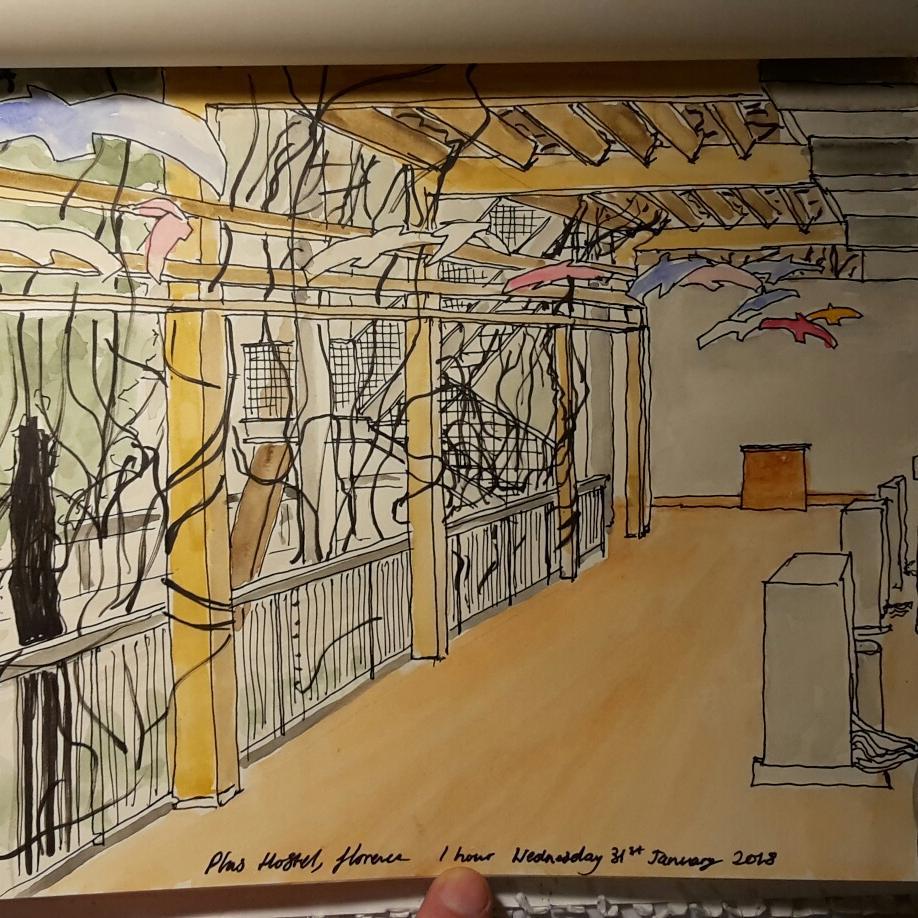 Plus Hostel, florence 1 hour Wednesday 31st January 2018